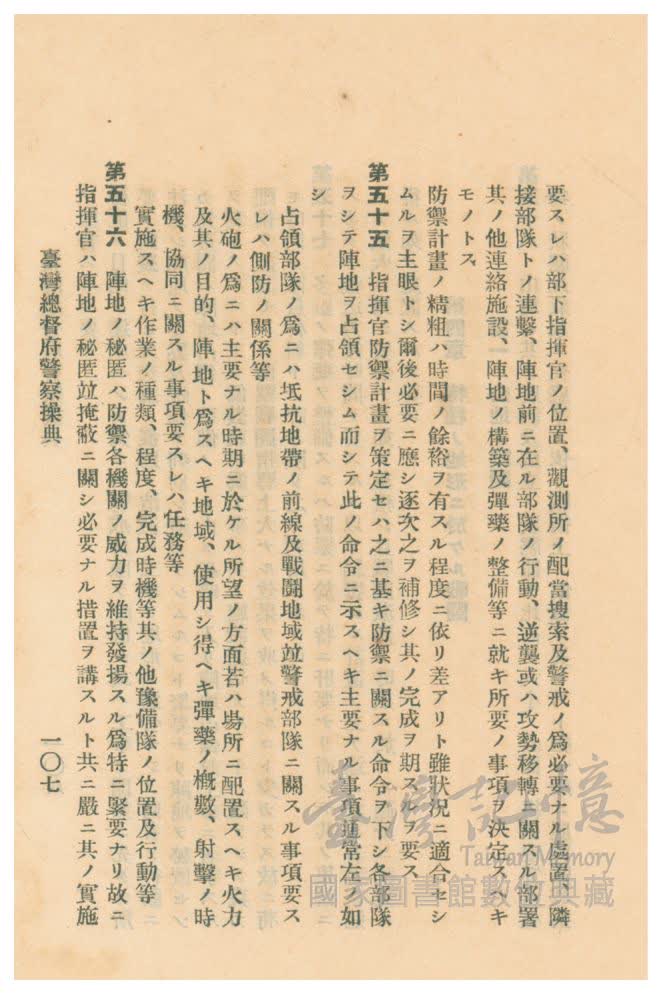 要スレハ部下指揮官ノ位置、觀測所ノ配當搜索及警戒ノ爲必要ナル處置、隣
接部隊トノ連繫、陣地前ニ在ル部隊ノ行動、逆襲或ハ攻勢移轉ニ關スル部署
其ノ他連絡施設、陣地ノ構築及彈藥ノ整備等ニ就キ所要ノ事項ヲ決定スヘキ
モノトス
防禦計畫ノ精粗ハ時間ノ餘裕ヲ有スル程度ニ依リ差アリト雖狀況ニ適合セシ
ムルヲ主眼トシ爾後必要ニ應シ逐次之ヲ補修シ其ノ完成ヲ期スルヲ要ス
第五十五 指揮官防禦計畫ヲ策定セハ之ニ基キ防禦ニ關スル命令ヲ下シ各部隊
ヲシテ陣地ヲ占領セシム而シテ此ノ命令ニ示スヘキ主要ナル事項通常左ノ如
シ
占領部隊ノ爲ニハ抵抗地帶ノ前線及戰鬪地域竝警戒部隊ニ關スル事項要ス
レハ側防ノ關係等
火砲ノ爲ニハ主要ナル時期ニ於ケル所望ノ方面若ハ場所ニ配置スヘキ火力
及其ノ目的、陣地ト爲スヘキ地域、使用シ得ヘキ彈藥ノ槪數、射擊ノ時
機、協同ニ關スル事項要スレハ任務等
實施スヘキ作業ノ種類、程度、完成時機等其ノ他豫備隊ノ位置及行動等
第五十六 陣地ノ秘匿ハ防禦各機關ノ威力ヲ維持發揚スル爲特ニ緊要ナリ故ニ
指揮官ハ陣地ノ秘匿竝掩蔽ニ關シ必要ナル措置ヲ講スルト共ニ嚴ニ其ノ實施
臺灣總督府警察操典
一〇七
臺灣記憶
Taiwan Memory
國家圖書館數位典藏